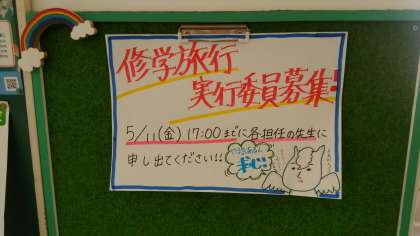 修学旅行
実行委員募集!
5/11(金) 17:00までに各担任の先生に
申し出てください!!